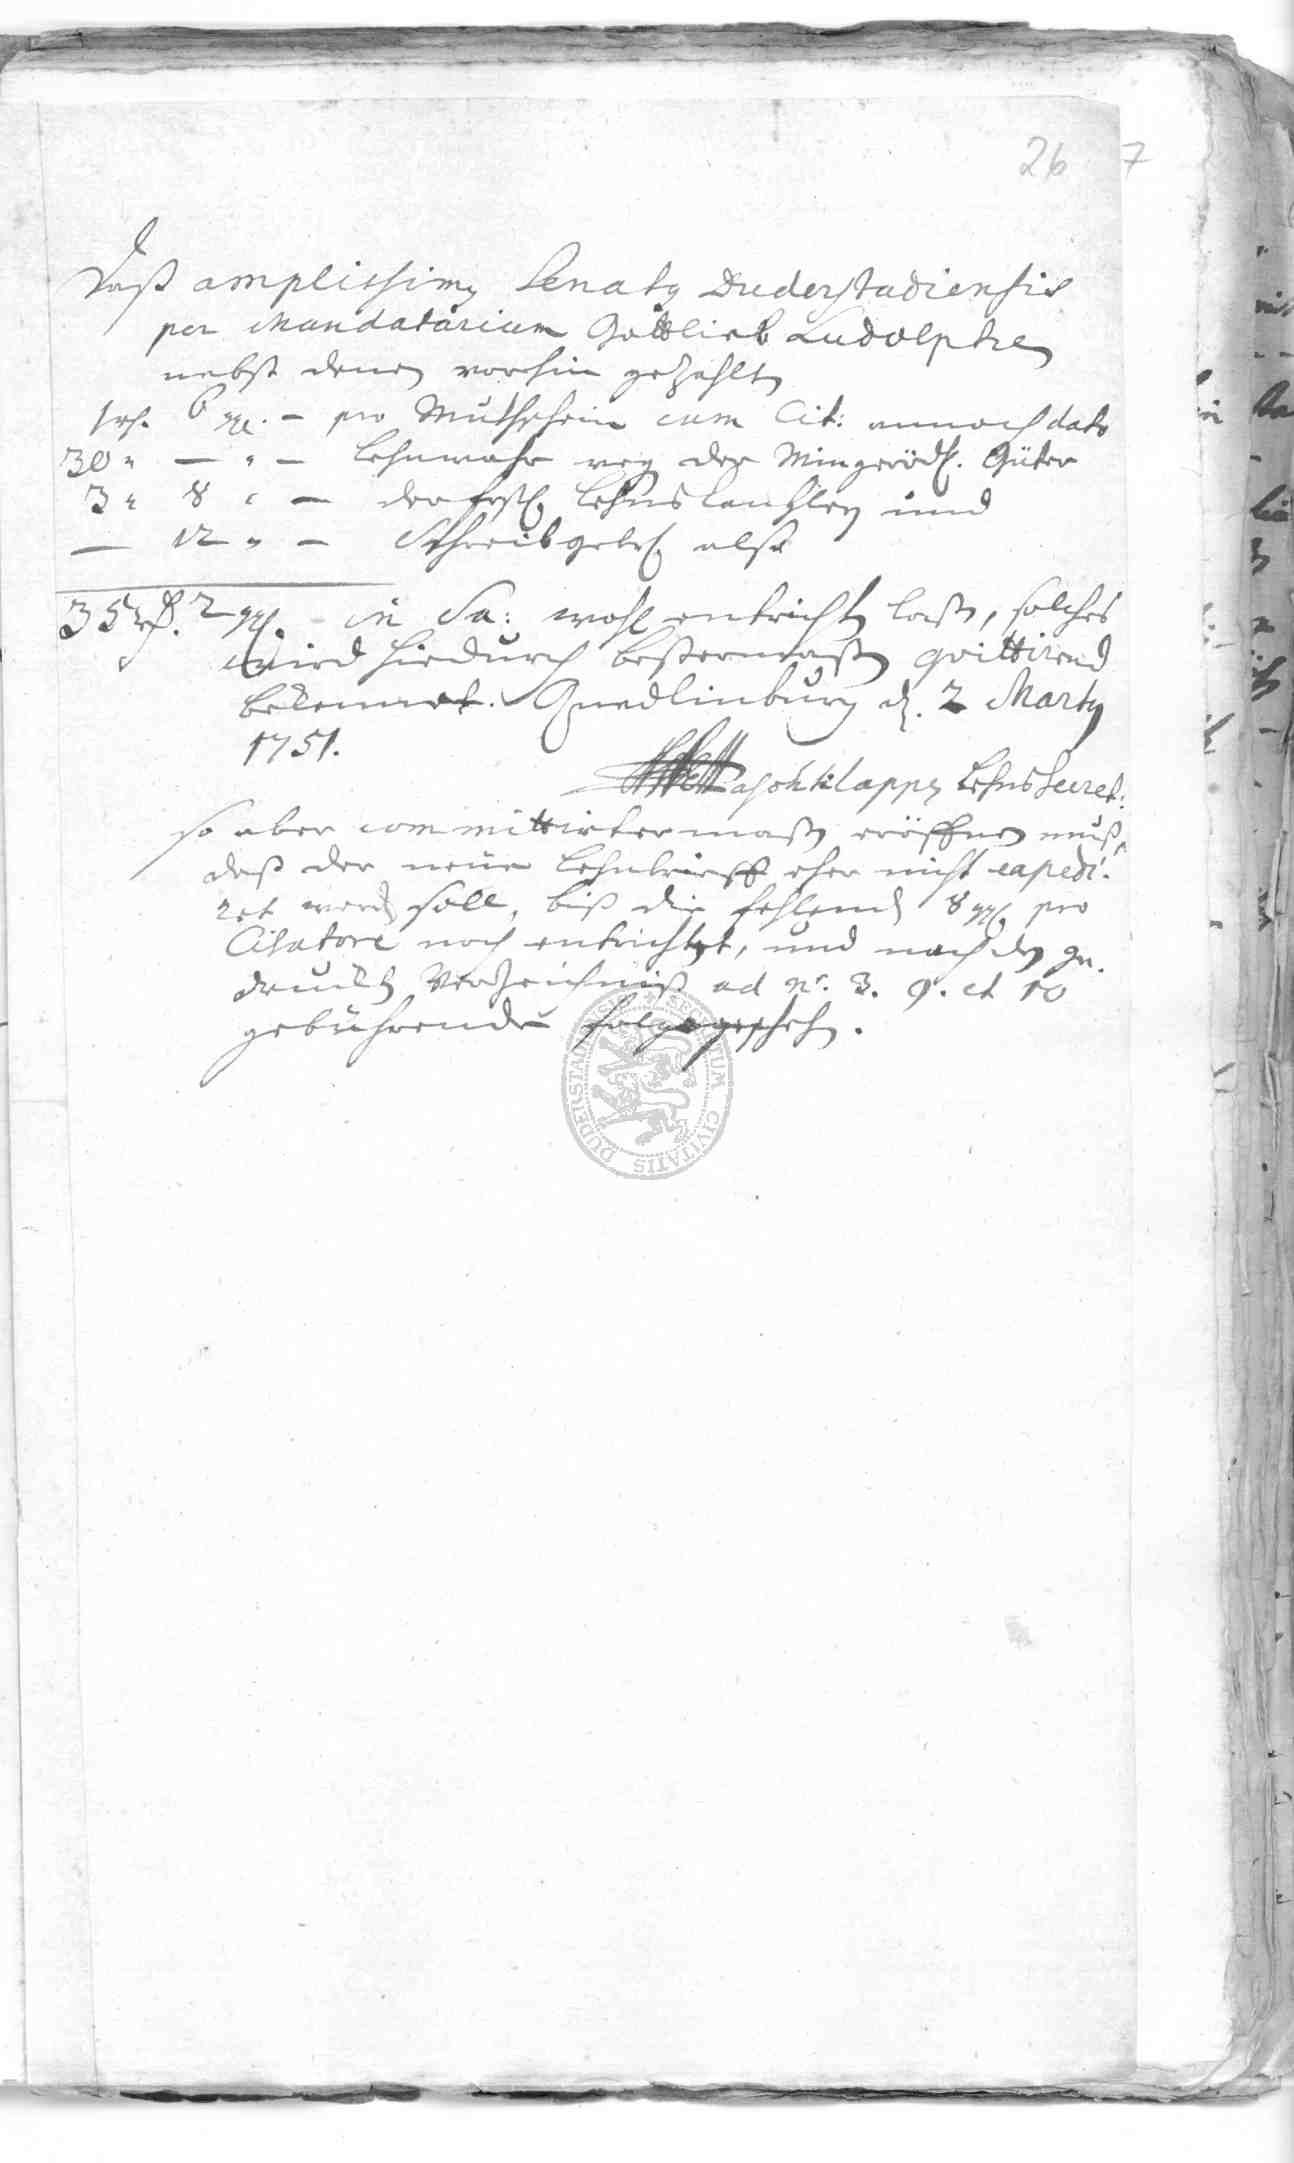 26 7
Daß amplissimus Senatus Duderstadiensis
per Mandatarium Gottlieb Ludolphen
nebst denen vorhin gezahlten
1 rh. 6 ggr. – pro Muthschein cum Cit: annoch dato
30 " — " – Lehnwahr weg der Mingeröd. Güter
3 " 8 " – der Lehns Cantzley und
— 12 " – Schreibgebühr also
35 rh. 2 ggr. in Sa: wohl entrichten laßen, solches
wird hiedurch bestermaßen quittirend
bekennet. Quedlinburg d. 2 Marty
1751.
Klappen Lehns Secret:
so aber committirtermaßen eröffnen muß,
daß der neue Lehnbrieff eher nicht expedi-
ret werden soll, biß die fehlende 8 ggr. pro
Citatore noch entrichtet, und nach dem ge-
druckten Verzeichniß ad nr. 3. 9. et 10
gebührende folge geschehen.
SIGILLUM CIVITATIS DUDERSTADENSIS